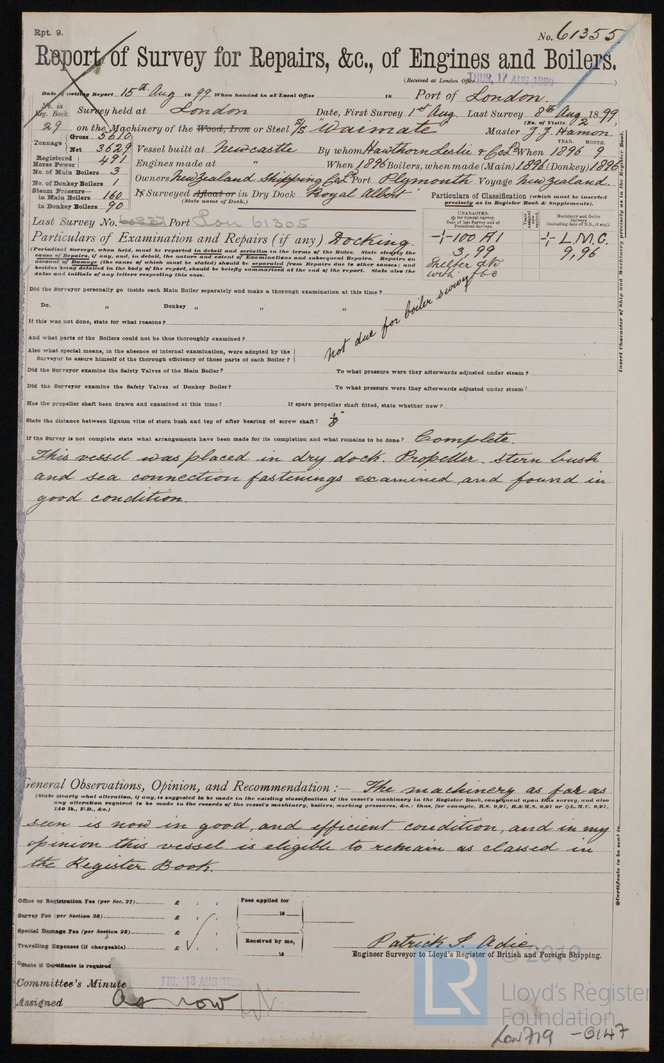 Rpt. 9.
No. 61355.
Report of Survey for Repairs, &c., of Engines and Boilers.
(Received at London Office THUR, 17 AUG 1899)
Date of writing Report 15th Aug 1899 When handed in at Local Office 18 Port of London.
No. in Reg. Book. Survey held at London Date, First Survey 1st Aug. Last Survey 8th Aug 1899.
(No. of Visits 2)
29 on the Machinery of the Wood, Iron or Steel S/S Waimate Master J. J. Hamon.
Tonnage Gross 5610 Net 3629
Vessel built at Newcastle By whom Hawthorn Leslie & Co Ld When YEAR. 1896 MONTH. 9
Registered Horse Power 491
Engines made at " When 1896 Boilers, when made (Main) 1896 (Donkey) 1896
No. of Main Boilers 3
Owners New Zealand Shipping Co Ld Port Plymouth Voyage New Zealand.
No. of Donkey Boilers 1
Steam Pressure in Main Boilers 160
in Donkey Boilers 90
If Surveyed Afloat or in Dry Dock Royal Albert
(State name of Dock.)
Particulars of Classification (which must be inserted precisely as in Register Book & Supplements).
Last Survey No. Port Lon 61305
CHARACTER.
Machinery and Boiler Surveys (including date of N.B., if any).
+100 A1
3,99
Shelter dk
with fbd
+ L.M.C.
9,96
Particulars of Examination and Repairs (if any) Docking.
(Periodical Surveys, when held, must be reported in detail and seriatim in the terms of the Rules. State clearly the
cause of Repairs, if any, and, in detail, the nature and extent of Examinations and subsequent Repairs. Repairs on
account of Damage (the cause of which must be stated) should be separated from Repairs due to other causes; and
besides being detailed in the body of the report, should be briefly summarized at the end of the report. State also the
dates and initials of any letters respecting this case.
Did the Surveyor personally go inside each Main Boiler separately and make a thorough examination at this time?
Do. " Donkey " " "
If this was not done, state for what reasons?
not due for boiler survey
And what parts of the Boilers could not be thus thoroughly examined?
Also what special means, in the absence of internal examination, were adopted by the
Surveyor to assure himself of the thorough efficiency of those parts of each Boiler?
Did the Surveyor examine the Safety Valves of the Main Boiler? To what pressure were they afterwards adjusted under steam?
Did the Surveyor examine the Safety Valves of Donkey Boiler? To what pressure were they afterwards adjusted under steam?
Has the propeller shaft been drawn and examined at this time? If spare propeller shaft fitted, state whether new?
State the distance between lignum vitæ of stern bush and top of after bearing of screw shaft?
If the Survey is not complete state what arrangements have been made for its completion and what remains to be done? Complete.
This vessel was placed in dry dock. Propeller, stern bush
and sea connection fastenings examined and found in
good condition.
General Observations, Opinion, and Recommendation:— The machinery as far as
(State clearly what alteration, if any, is suggested to be made in the existing classification of the vessel's machinery in the Register Book, consequent upon this survey, and also
any alteration required to be made in the records of the vessel's machinery, boilers, working pressures, &c.; thus, for example, B.S. 9,97, B.&M.S. 9,97 or L.M.C. 9,97,
140 lb., F.D., &c.)
seen is now in good, and efficient condition, and in my
opinion this vessel is eligible to remain as classed in
the Register Book.
Office or Registration Fee (per Sec. 27) £
Survey Fee (per Section 28) £
Special Damage Fee (per Section 28) £
Travelling Expenses (if chargeable) £
Fees applied for
18
Received by me,
18
Patrick T. Adie
Engineer Surveyor to Lloyd's Register of British and Foreign Shipping.
State if Certificate is required
Committee's Minute FRI, 18 AUG 1899
Assigned as now
Insert Character of Ship and Machinery precisely as in the Register Book.
Certificate to be sent to
© 2019
LR
Lloyd's Register
Foundation
Lon 719 - 0147